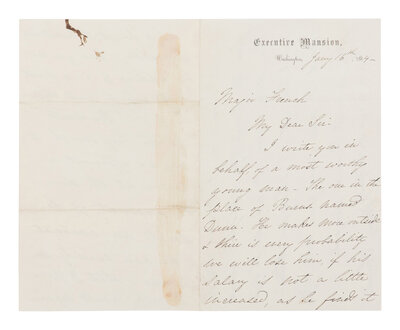 Executive Mansion,
Washington, Jany 16th 1864
Major French
My Dear Sir
I write you in
behalf of a most worthy
young man - The one in the
place of Burns named
Dunn. He makes more outside
& there is every probability
we will lose him if his
salary is not a little
increased, as he finds it